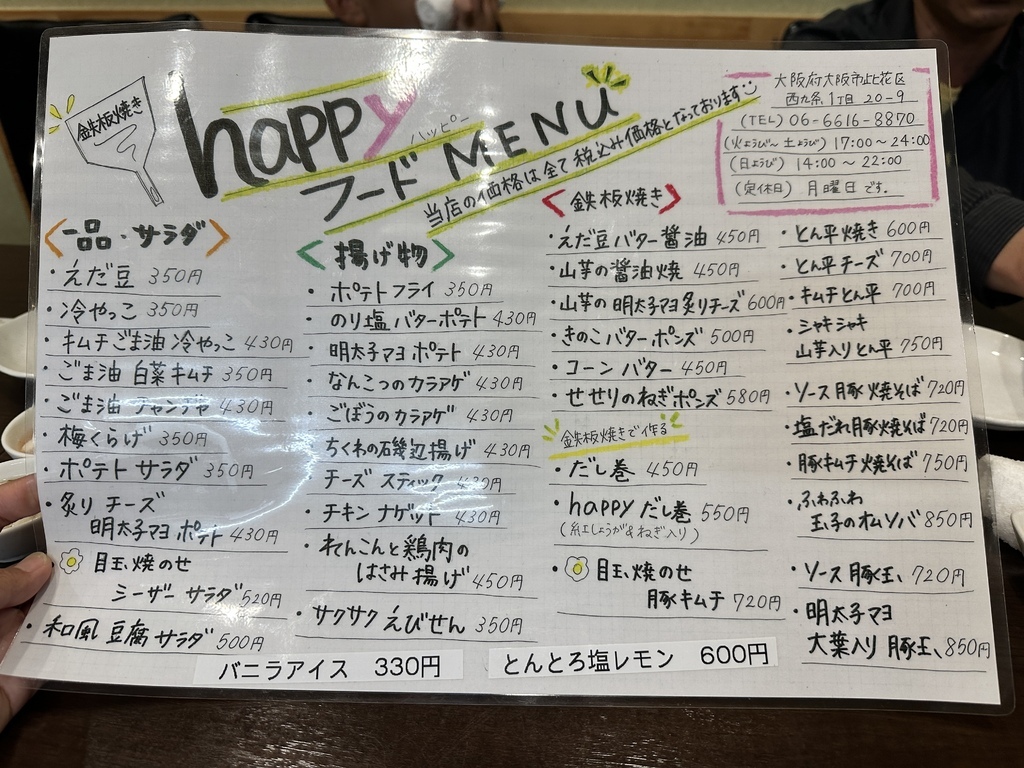 鉄板焼き
happy
ハッピー
フード MENU
当店の価格は全て税込み価格となっております
大阪府大阪市此花区
西九条1丁目 20-9
(TEL) 06-6616-8870
(火ようび~土ようび) 17:00~24:00
(日ようび) 14:00~22:00
(定休日) 月曜日です。
<一品・サラダ>
・えだ豆 350円
・冷やっこ 350円
・キムチごま油冷やっこ 430円
・ごま油 白菜キムチ 350円
・ごま油 チャンヂャ 430円
・梅くらげ 350円
・ポテトサラダ 350円
・炙りチーズ
明太子マヨポテト 430円
・目玉焼のせ
シーザーサラダ 520円
・和風豆腐サラダ 500円
<揚げ物>
・ポテトフライ 350円
・のり塩バターポテト 430円
・明太子マヨポテト 430円
・なんこつのカラアゲ 430円
・ごぼうのカラアゲ 430円
・ちくわの石幾辺揚げ 430円
・チーズスティック 430円
・チキンナゲット 430円
・れんこんと鶏肉の
はさみ揚げ 450円
・サクサクえびせん 350円
<鉄板焼き>
・えだ豆バター醤油 450円
・山芋の醤油焼 450円
・山芋の明太子マヨ炙りチーズ 600円
・きのこバターポンズ 500円
・コーンバター 450円
・せせりのねぎポンズ 580円
鉄板焼きで作る
・だし巻 450円
・happyだし巻 550円
(紅しょうが&ねぎ入り)
・目玉焼のせ
豚キムチ 720円
・とん平焼き 600円
・とん平チーズ 700円
・キムチとん平 700円
・シャキシャキ
山芋入りとん平 750円
・ソース豚焼そば 720円
・塩だれ豚焼そば 720円
・豚キムチ焼そば 750円
・ふわふわ
玉子のオムソバ 850円
・ソース豚玉 720円
・明太子マヨ
大葉入り豚玉 850円
バニラアイス 330円
とんとろ塩レモン 600円